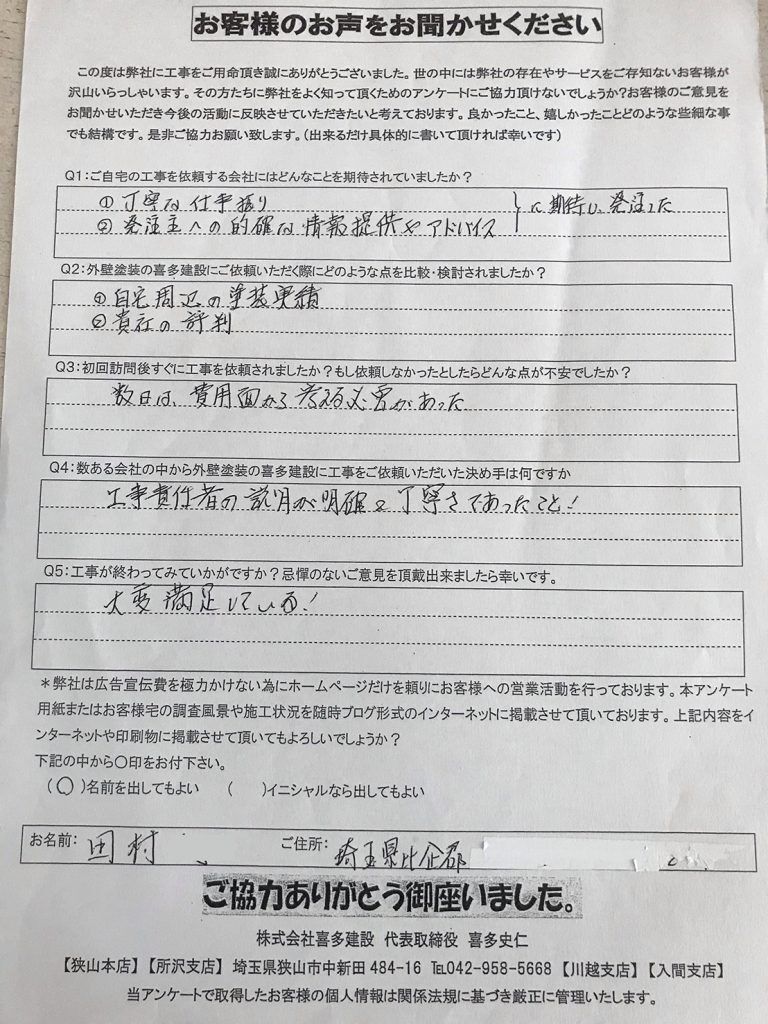 お客様のお声をお聞かせください
この度は弊社に工事をご用命頂き誠にありがとうございました。世の中には弊社の存在やサービスをご存知ないお客様が
沢山いらっしゃいます。その方たちに弊社をよく知って頂くためのアンケートにご協力頂けないでしょうか?お客様のご意見を
お聞かせいただき今後の活動に反映させていただきたいと考えております。良かったこと、嬉しかったことどのような些細な事
でも結構です。是非ご協力お願い致します。(出来るだけ具体的に書いて頂ければ幸いです)
Q1:ご自宅の工事を依頼する会社にはどんなことを期待されていましたか?
①丁寧な仕事振り
②発注主への的確な情報提供やアドバイス }に期待し、発注した
Q2:外壁塗装の喜多建設にご依頼いただく際にどのような点を比較・検討されましたか?
①自宅周辺の塗装実績
②貴社の評判
Q3:初回訪問後すぐに工事を依頼されましたか?もし依頼しなかったとしたらどんな点が不安でしたか?
数日は、費用面から考える必要があった
Q4:数ある会社の中から外壁塗装の喜多建設に工事をご依頼いただいた決め手は何ですか
工事責任者の説明が明確で丁寧さであったこと!
Q5:工事が終わってみていかがですか?忌憚のないご意見を頂戴出来ましたら幸いです。
大変満足している!
*弊社は広告宣伝費を極力かけない為にホームページだけを頼りにお客様への営業活動を行っております。本アンケート
用紙またはお客様宅の調査風景や施工状況を随時ブログ形式のインターネットに掲載させて頂いております。上記内容をイ
ンターネットや印刷物に掲載させて頂いてもよろしいでしょうか?
下記の中から○印をお付下さい。
(○)名前を出してもよい ( )イニシャルなら出してもよい
お名前: 田村 ご住所: 埼玉県比企郡
ご協力ありがとう御座いました。
株式会社喜多建設 代表取締役 喜多史仁
【狭山本店】【所沢支店】埼玉県狭山市中新田484-16 ℡042-958-5668【川越支店】【入間支店】
当アンケートで取得したお客様の個人情報は関係法規に基づき厳正に管理いたします。